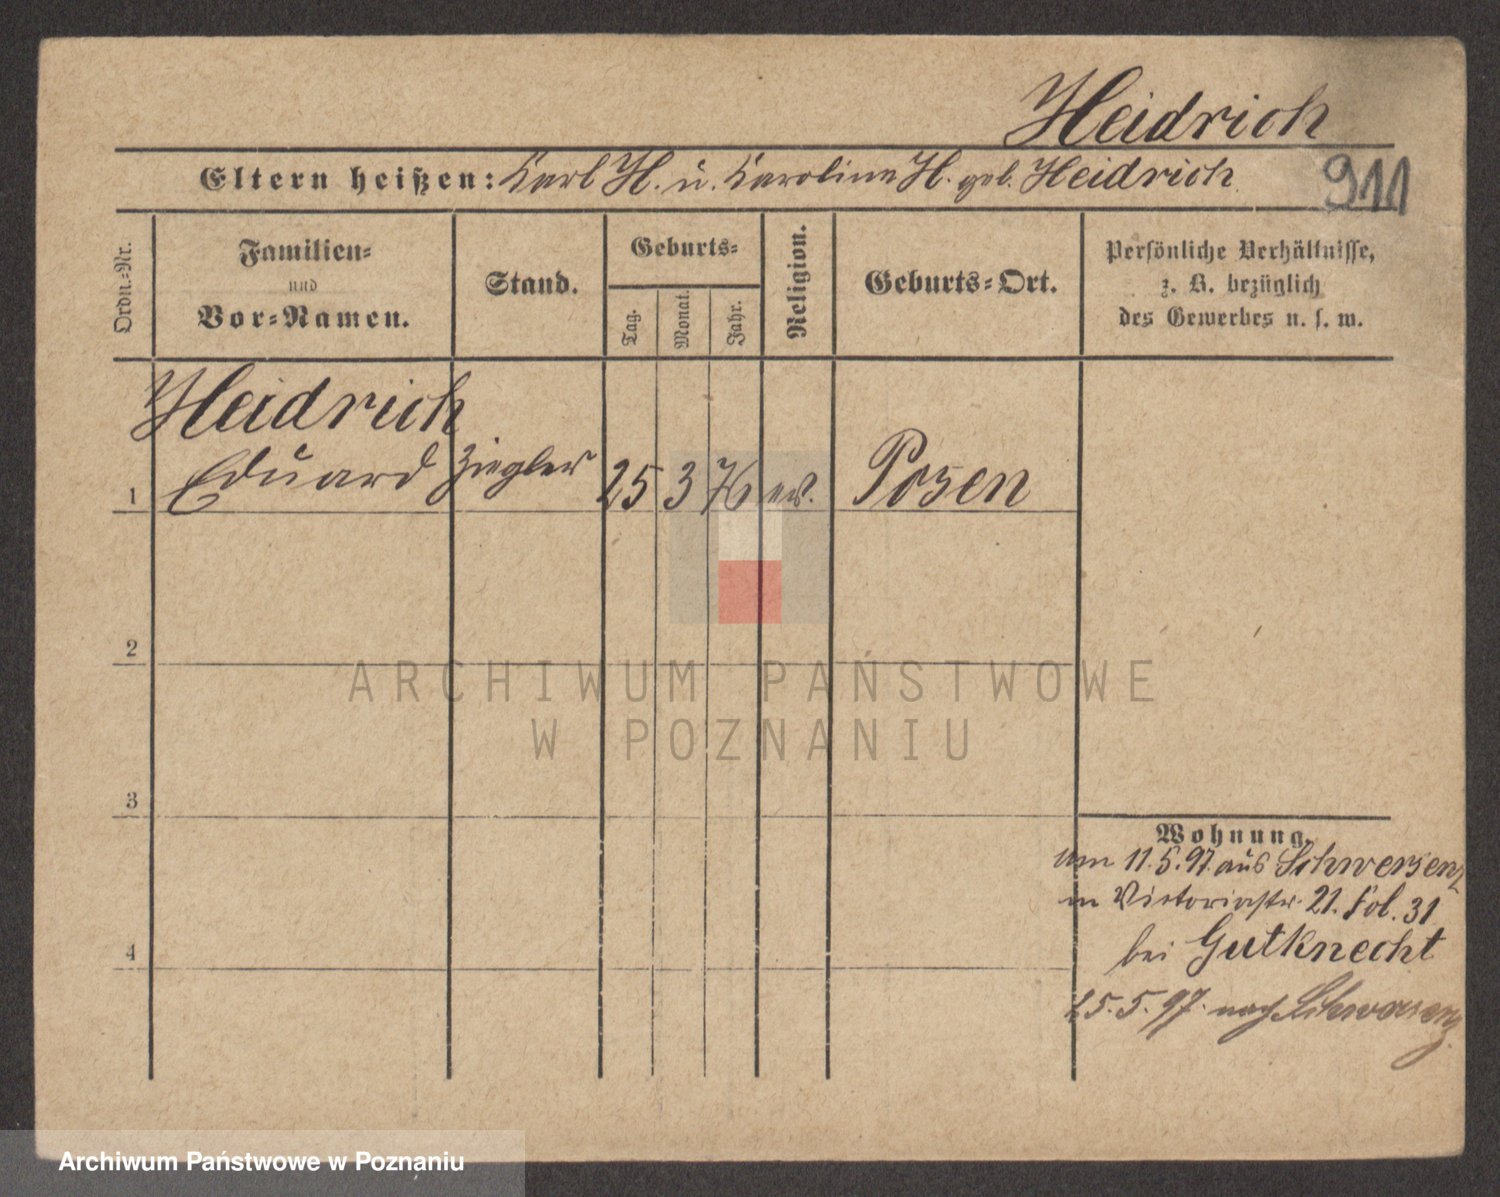 Heidrich
Eltern heißen: Karl H. u. Karoline H. geb. Heidrich
911
Ordn.-Nr.
Familien-
und
Vor-Namen.
Stand.
Geburts-
Tag.
Monat.
Jahr.
Religion.
Geburts-Ort.
Persönliche Verhältnisse,
z. B. bezüglich
des Gewerbes u. s. w.
Heidrich
1 Eduard Ziegler 25 3 76 ev. Posen
2
ARCHIWUM PAŃSTWOWE
W POZNANIU
3
Wohnung.
am 11.5.97. aus Schwersenz
in Victoriastr. 21. fol. 31
4
bei Gutknecht
25.5.97. nach Schwersenz
Archiwum Państwowe w Poznaniu